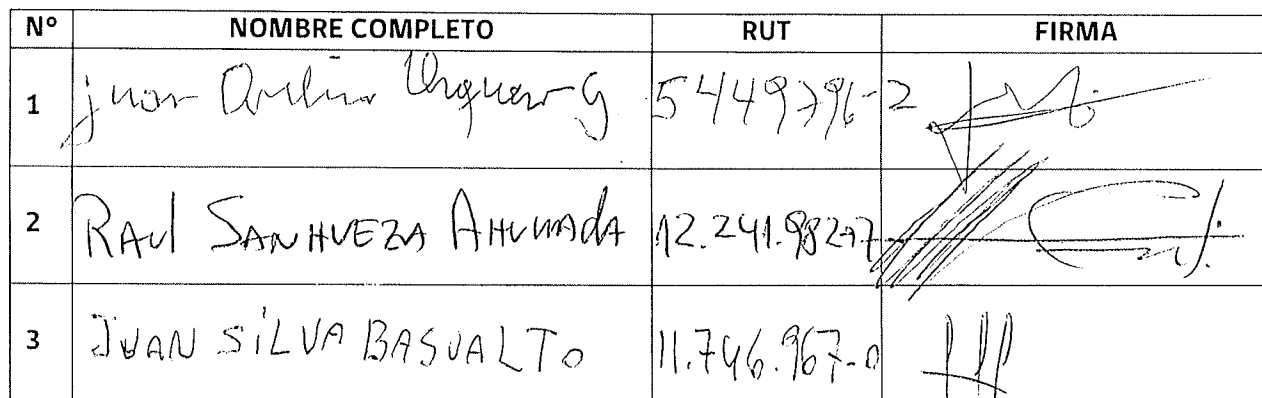 Nº NOMBRE COMPLETO RUT FIRMA
1 juan G 5449796-2
2 RAUl SANHUEZA AHUMADA 12.241.982-7
3 JUAN SILVA BASUALTO 11.746.967-0